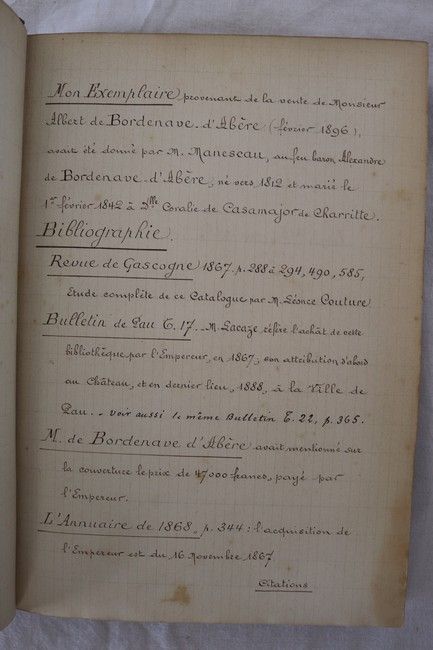 Mon Exemplaire provenant de la vente de Monsieur
Albert de Bordenave d'Abère (février 1896),
avait été donné par M. Manescau, au feu baron Alexandre
de Bordenave d'Abère, né vers 1812 et marié le
1er février 1842 à Dlle Coralie de Casamajor de Charritte.
Bibliographie.
Revue de Gascogne 1867. p. 288 à 294, 490, 585,
Etude complète de ce Catalogue par M. Léonce Couture
Bulletin de Pau T. 17. M. Lacaze réfère l'achât de cette
bibliothèque par l'Empereur, en 1867; son attribution d'abord
au Château, et en dernier lieu, 1888, à la Ville de
Pau. - Voir aussi le même Bulletin T. 22, p. 365.
M. de Bordenave d'Abère avait mentionné sur
la couverture le prix de 47000 francs, payé par
l'Empereur.
L'Annuaire de 1868, p. 344: l'acquisition de
l'Empereur est du 16 Novembre 1867
Citations